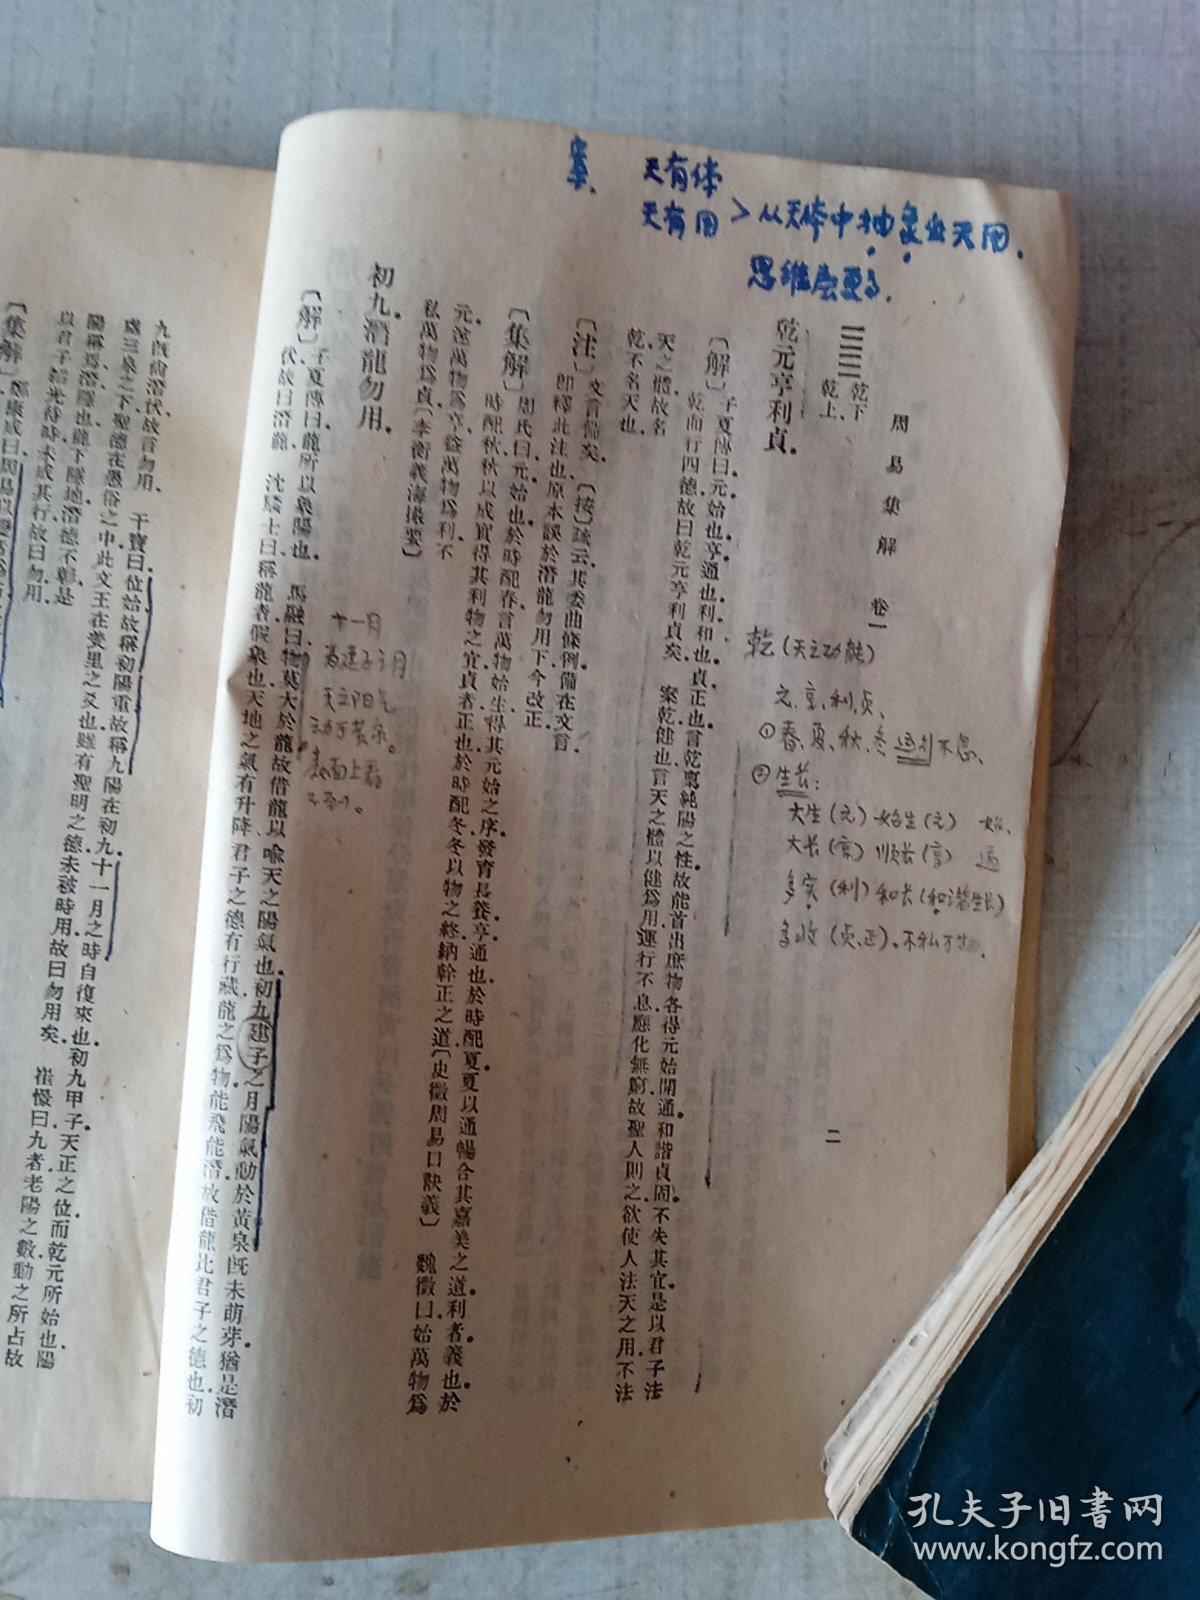 案、
天有体
天有用 > 从天体中抽象出天用.
思维层更高.
周易集解 卷一
乾下
乾上.
乾元亨利貞.
〔解〕子夏傳曰.元始也.亨通也.利和也.貞正也.言乾稟純陽之性.故能首出庶物.各得元始開通.和諧貞固.不失其宜.是以君子法
乾而行四德.故曰乾元亨利貞矣. 案乾健也.言天之體以健爲用.運行不息.應化無窮.故聖人則之.欲使人法天之用.不法
天之體.故名
乾不名天也.
〔注〕文言備矣.〔按〕疏云.其委曲條例.備在文言.
卽釋此注也.原本誤於潛龍勿用下.今改正.
〔集解〕周氏曰.元始也.於時配春.言萬物始生.得其元始之序.發育長養.亨通也.於時配夏.夏以通暢.合其嘉美之道.利者義也.於
時配秋.秋以成實.得其利物之宜.貞者正也.於時配冬.冬以物之終.納幹正之道.〔史徵周易口訣義〕 魏徵曰.始萬物爲
元.遂萬物爲亨.益萬物爲利.不
私萬物爲貞.〔李衡義海撮要〕
初九.潛龍勿用.
〔解〕子夏傳曰.龍所以象陽也. 馬融曰.物莫大於龍.故借龍以喻天之陽氣也.初九建子之月.陽氣動於黃泉.旣未萌芽.猶是潛
伏.故曰潛龍. 沈驎士曰.稱龍者.假象也.天地之氣有升降.君子之德有行藏.龍之爲物.能飛能潛.故借龍比君子之德也.初
二
乾（天之功能）
元、亨、利、贞、
①春、夏、秋、冬 运行不息、
②生长：
大生（元） 始生（元） 始、
大长（亨） 顺长（亨） 通
多实（利） 和长（和谐生长）
多收（贞、正）、不私万物、
十一月
为建子之月
天之阳气
动于黄泉。
表面上看
不到。
九旣尚潛伏.故言勿用. 干寶曰.位始故稱初.陽重故稱九.陽在初九.十一月之時.自復來也.初九甲子.天正之位.而乾元所始也.陽
處三泉之下.聖德在愚俗之中.此文王在羑里之爻也.雖有聖明之德.未被時用.故曰勿用矣. 崔憬曰.九者老陽之數.動之所占.故
陽稱焉.潛隱也.龍下隱地.潛德不彰.是
以君子韜光待時.未成其行.故曰勿用.
〔集解〕鄭康成曰.周易以變者
孔夫子旧书网
www.kongfz.com